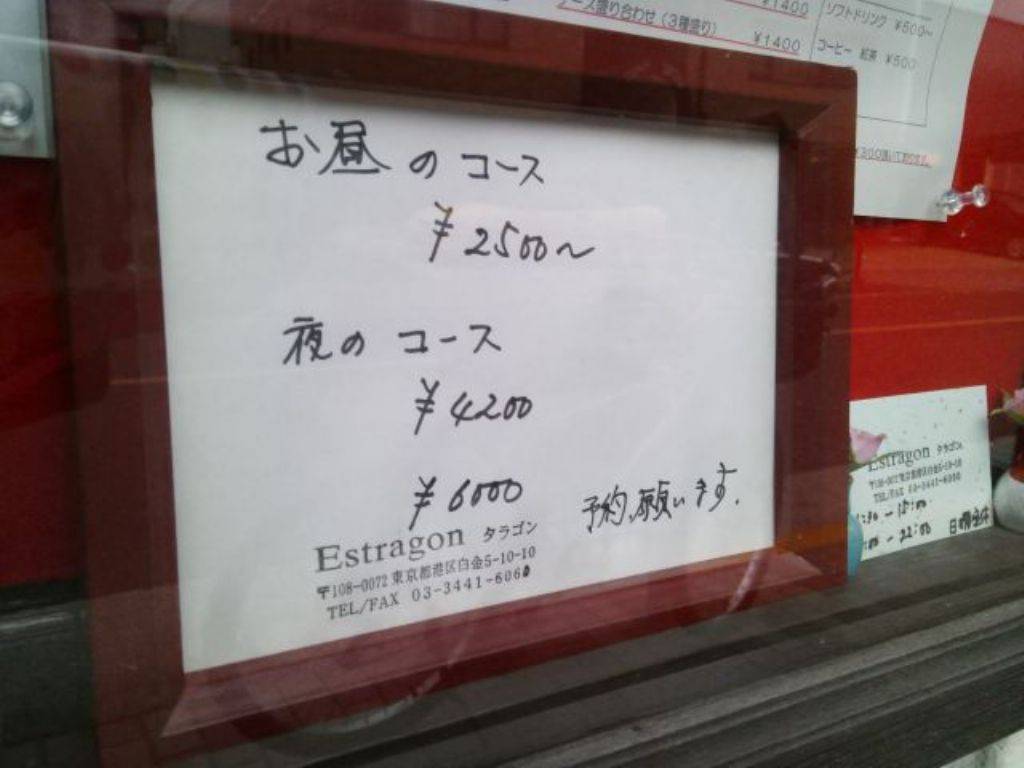 お昼のコース
¥2500～
夜のコース
¥4200
¥6000
予約願います.
Estragon タラゴン
〒108-0072 東京都港区白金5-10-10
TEL/FAX 03-3441-6060
ース盛り合わせ (3種盛り)
¥1400
¥1400
ソフトドリンク ¥500～
コーヒー 紅茶 ¥500
Estragon タラゴン
〒108-0072 東京都港区白金5-10-10
TEL/FAX 03-3441-6060
:30 - 15:00
:00 - 22:00 日曜定休